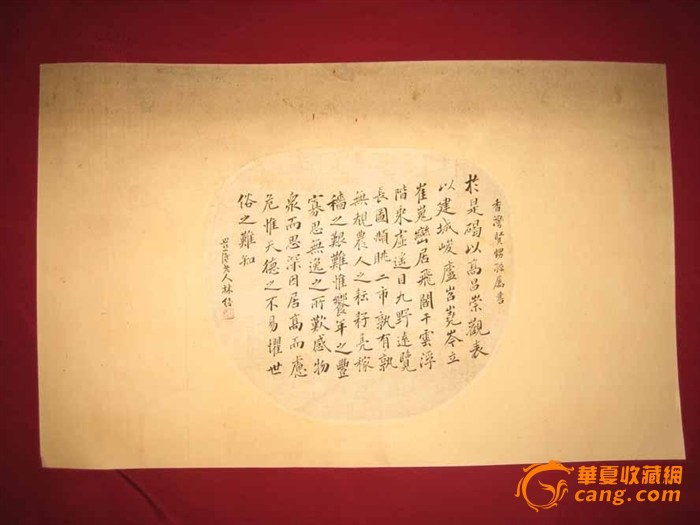 於是碣以高昌崇觀表
以建城峻廬岧嶤岑立
崔嵬巒居飛閣干雲浮
階乘虛遙目九野遠覽
長圖頫眺二市孰有孰
無覩農人之耘耔亮稼
穡之艱難惟饗年之豐
寡思無逸之所歎感物
眾而思深因居高而慮
危惟天德之不易懼世
俗之難知
香灣賢甥孫屬書
老人林
華夏收藏網
cang.com